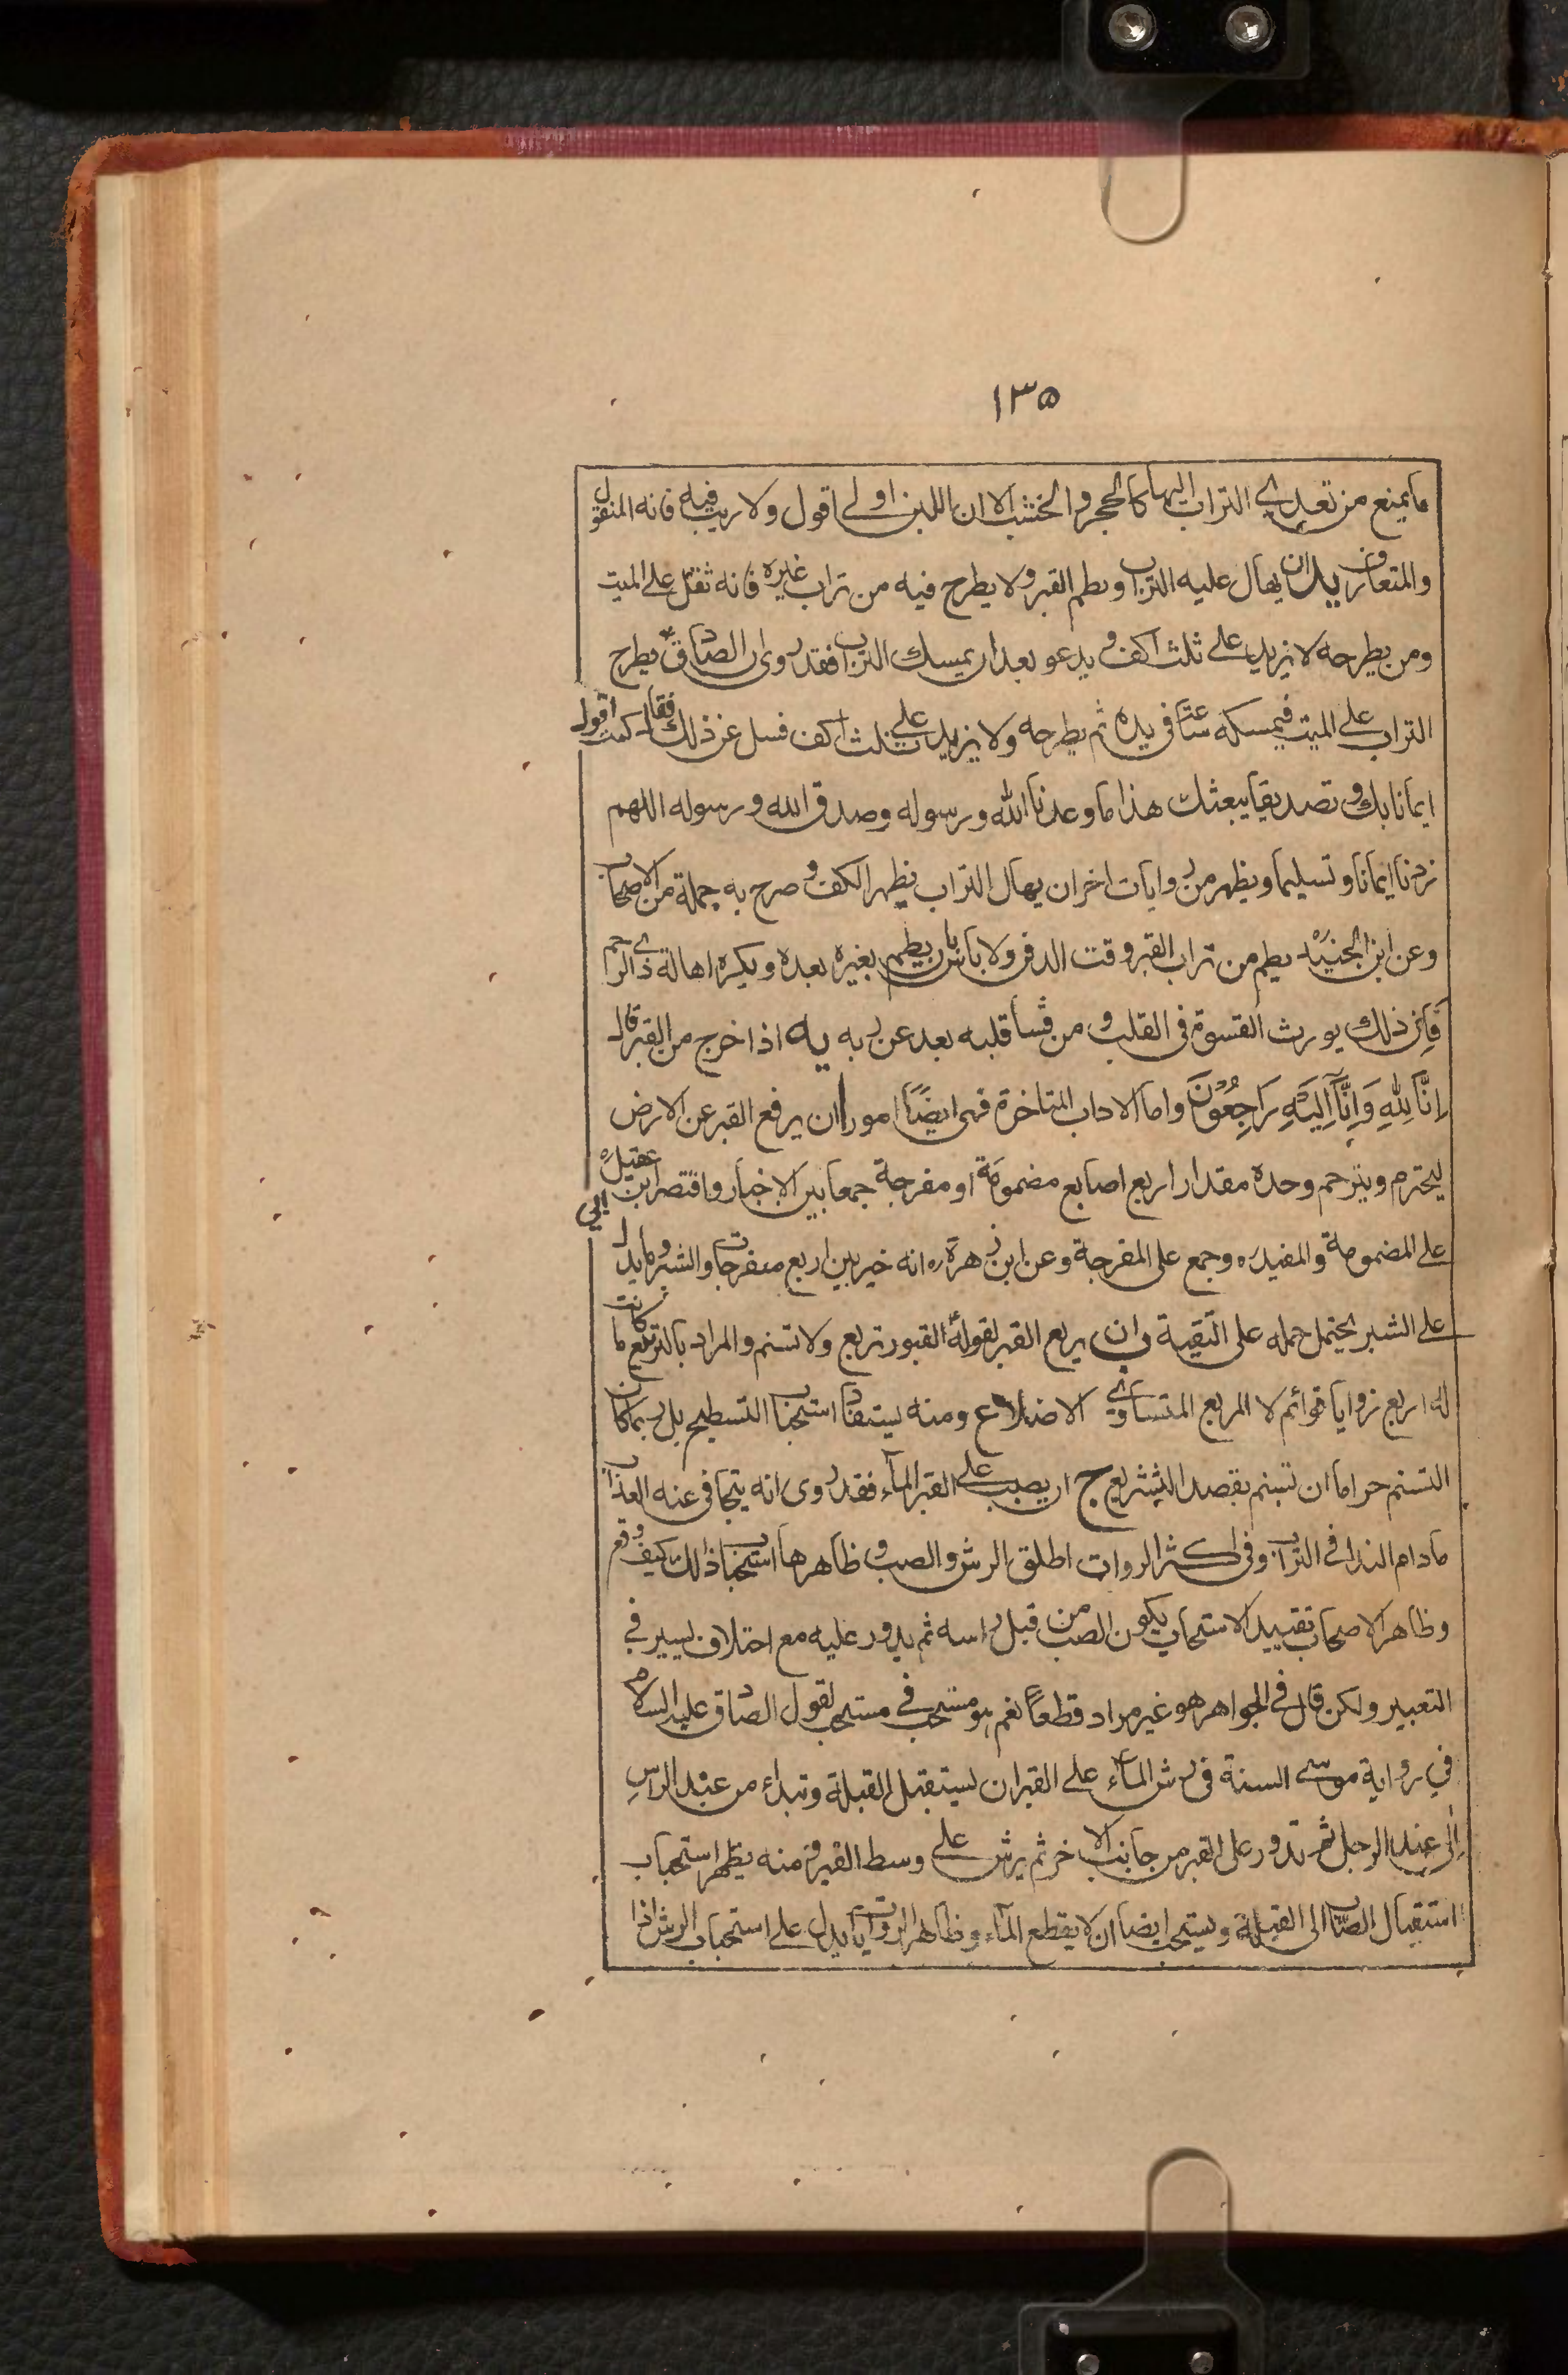 ١٣٥
ما يمنع من تعدي التراب اليها كالحجر والخشب الا ان اللبن اولى اقول ولا ريب فيه فانه المنقول
والمتعارف يد ان يهال عليه التراب ويطم القبر ولا يطرح فيه من تراب غيره فانه ثقل على الميت
ومن يطرحه لا يزيد على ثلث اكف ويدعو بعد ان يمسك التراب فقد روى ان الصادق يطرح
التراب على الميت فيمسكه ساعة في يده ثم يطرحه ولا يزيد على ثلث اكف فسئل عن ذلك فقال كنت اقول
ايمانا بك وتصديقا ببعثك هذا ما وعدنا الله ورسوله وصدق الله ورسوله اللهم
زدنا ايمانا وتسليما ويظهر من روايات اخر ان يهال التراب بظهر الكف وصرح به جملة من الاصحاب
وعن ابن الجنيد يطم من تراب القبر وقت الدفن ولا باس بان يطم بغيره بعده ويكره اهالة ذي الرحم
فان ذلك يورث القسوة في القلب ومن قسا قلبه بعد عن ربه يه اذا خرج من القبر قال
اِنَّا لِلّٰهِ وَاِنَّا اِلَيْهِ رَاجِعُوْنَ واما الاداب المتاخرة فهى ايضًا امور ا ان يرفع القبر عن الارض
ليحترم ويترحم وحده مقدار اربع اصابع مضمومة او مفرجة جمعا بين الاخبار واقتصر ابن ابي عقيل
على المضمومة والمفيد ره وجمع على المفرجة وعن ابن زهرة ره انه خير بين اربع منفرجات والشبر وما يدل
على الشبر يحتمل حمله على التقية ب ان يربع القبر لقوله القبور تربع ولا تسنم والمراد بالتربيع ما كانت
له اربع زوايا قوائم لا المربع المتساوي الاضلاع ومنه يستفاد استحباب التسطيح بل ربما كان
التسنم حراما ان تسنم بقصد التشريع ج ان يصب على القبر الماء فقد روى انه يتجافى عنه العذاب
ما دام الندا في التراب وفي اكثر الروات اطلق الرش والصب وظاهرها استحباب ذلك كيف وقع
وظاهر الاصحاب تقييد الاستحباب بكون الصب من قبل راسه ثم يدور عليه مع اختلاف يسير في
التعبير ولكن قال في الجواهر هو غير مراد قطعاً نعم هو مستحب في مستحب لقول الصادق عليه السلام
في رواية موسى السنة في رش الماء على القبر ان ليستقبل القبلة وتبداء من عند الراس
الى عند الرجل ثم تدور على القبر من جانب الاخر ثم يرش على وسط القبر فمنه يظهر استحباب
استقبال الصاب الى القبلة ويستحب ايضا ان لا يقطع الماء وظاهر الروايات يدل على استحباب الرش اذا